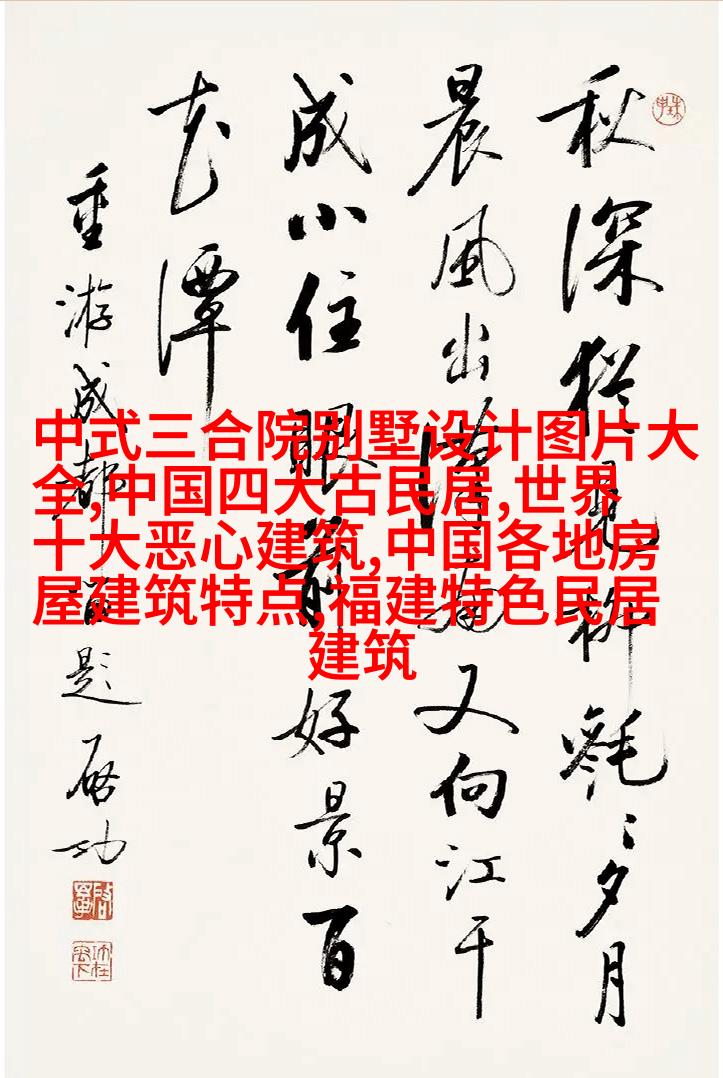 中式三合院别墅设计图片大
全,中国四大古民居,世界
十大恶心建筑,中国各地房
屋建筑特点,福建特色民居
建筑
秋深猶見柳毿〻夕月
晨風出漢南又向江干
成小住眼前好景百
花潭
重游成都留題 啟功